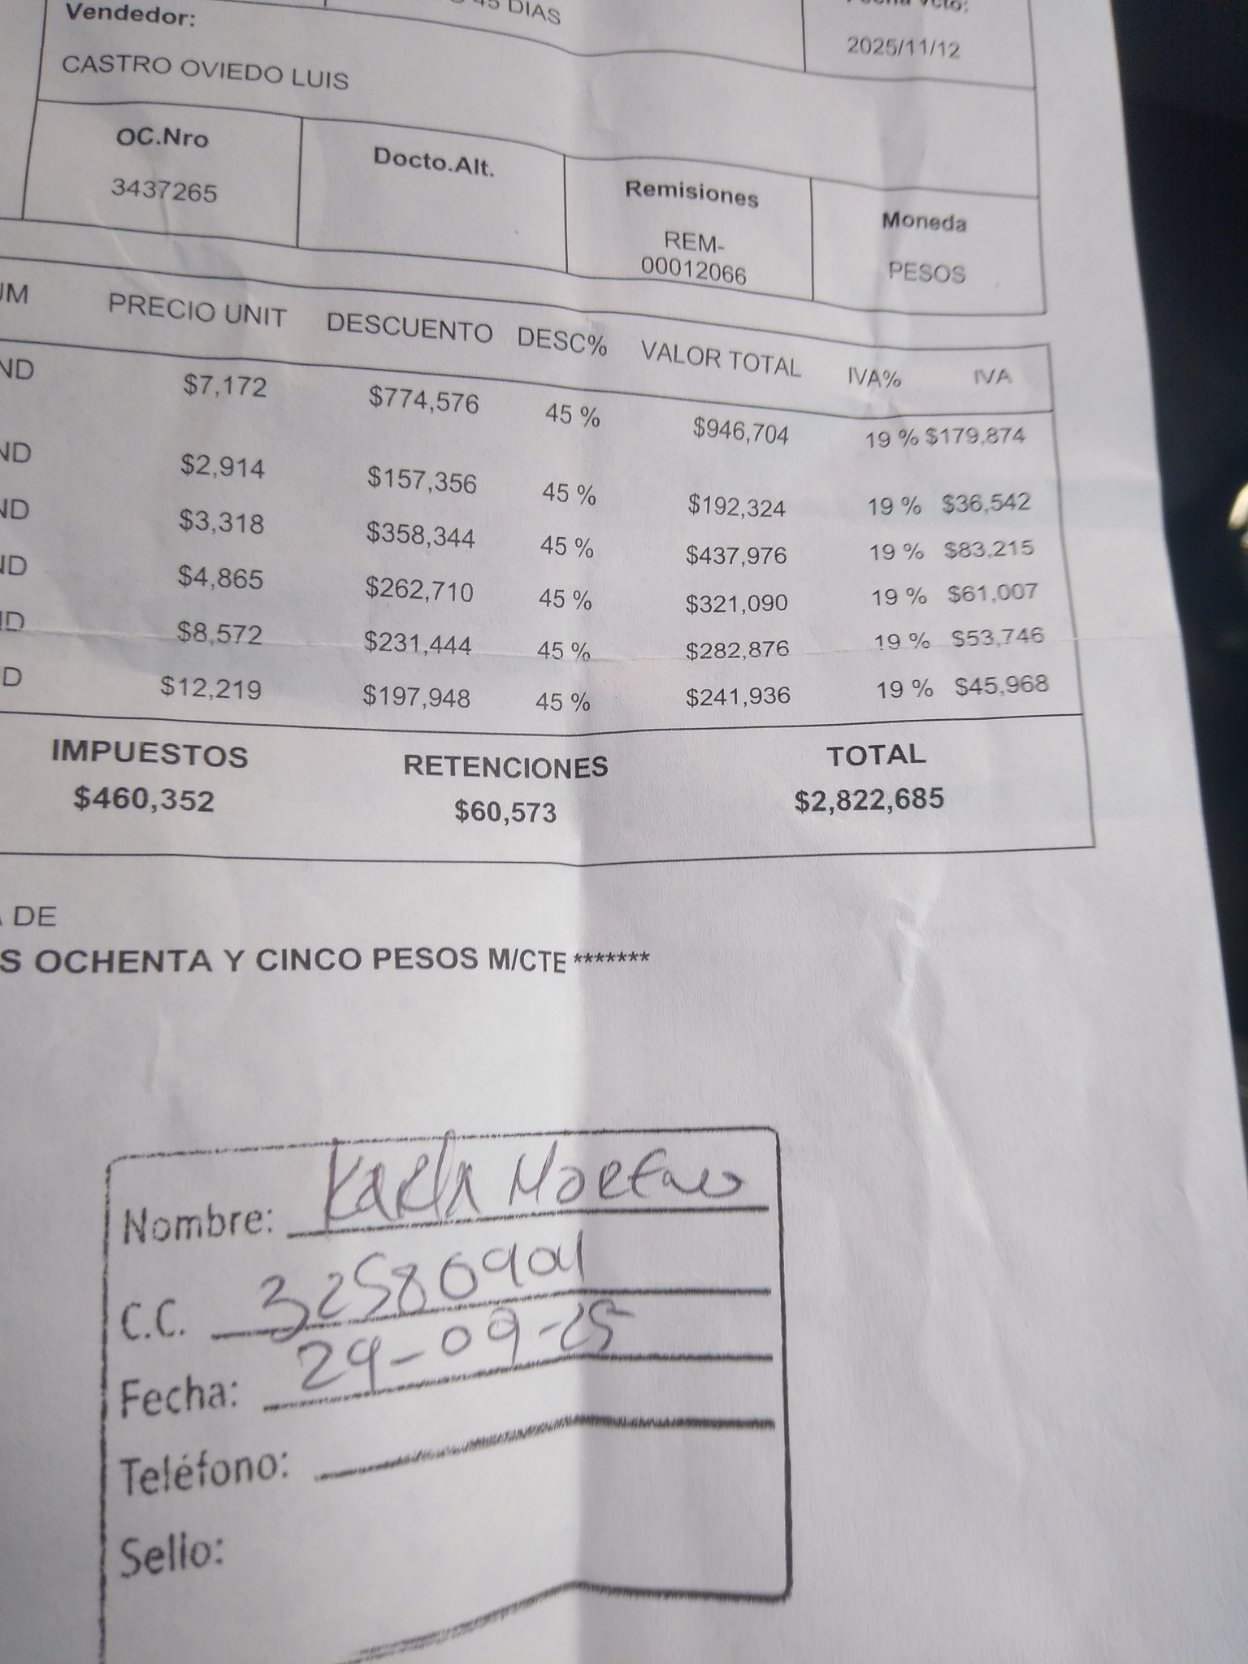 45 DIAS
Vendedor:
2025/11/12
CASTRO OVIEDO LUIS
OC.Nro
Docto.Alt.
Remisiones
Moneda
3437265
REM-
00012066
PESOS
UM PRECIO UNIT DESCUENTO DESC% VALOR TOTAL IVA% IVA
ND $7,172 $774,576 45 % $946,704 19 % $179,874
ND $2,914 $157,356 45 % $192,324 19 % $36,542
ND $3,318 $358,344 45 % $437,976 19 % $83,215
ND $4,865 $262,710 45 % $321,090 19 % $61,007
ND $8,572 $231,444 45 % $282,876 19 % $53,746
D $12,219 $197,948 45 % $241,936 19 % $45,968
IMPUESTOS RETENCIONES TOTAL
$460,352 $60,573 $2,822,685
DE
S OCHENTA Y CINCO PESOS M/CTE *******
Nombre: Karla
C.C. 32580904
Fecha: 29-09-25
Teléfono:
Sello: